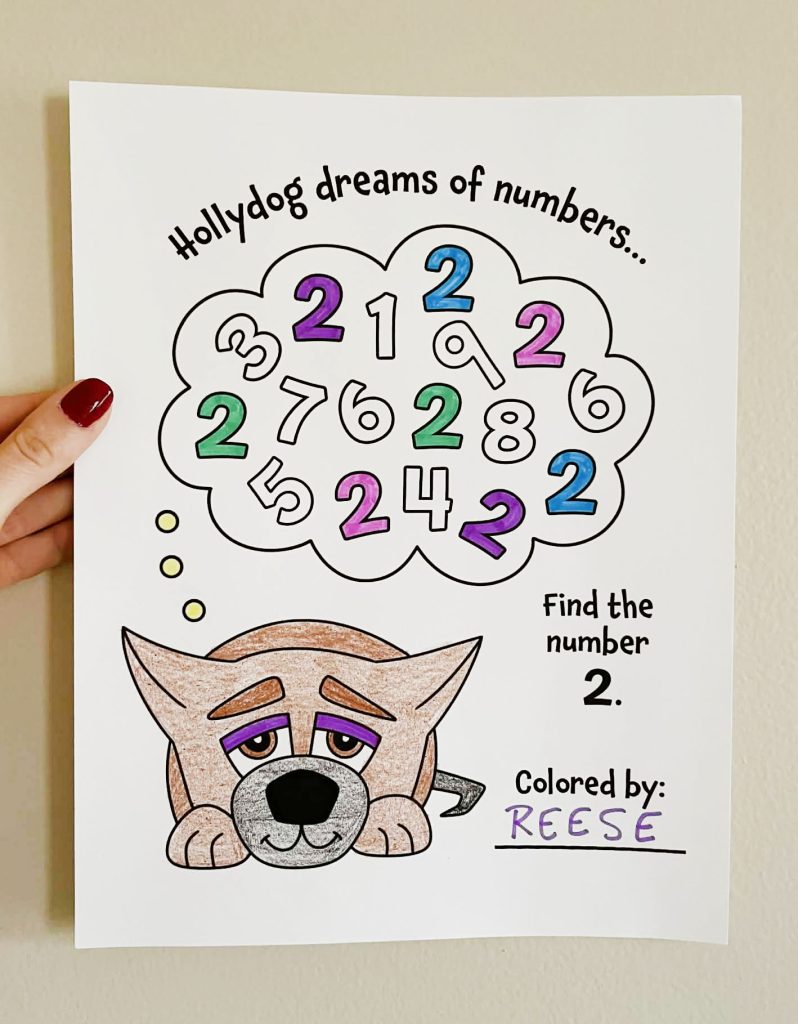 Hollydog dreams of numbers...
2 1 2
3 9 2
2 7 6 2 8 6
5 2 4 2 2
Find the
number
2.
Colored by:
REESE